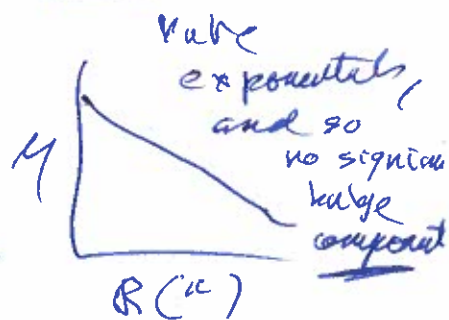 Pure
exponentials,
and so
no signican
bulge
component
μ
R(")